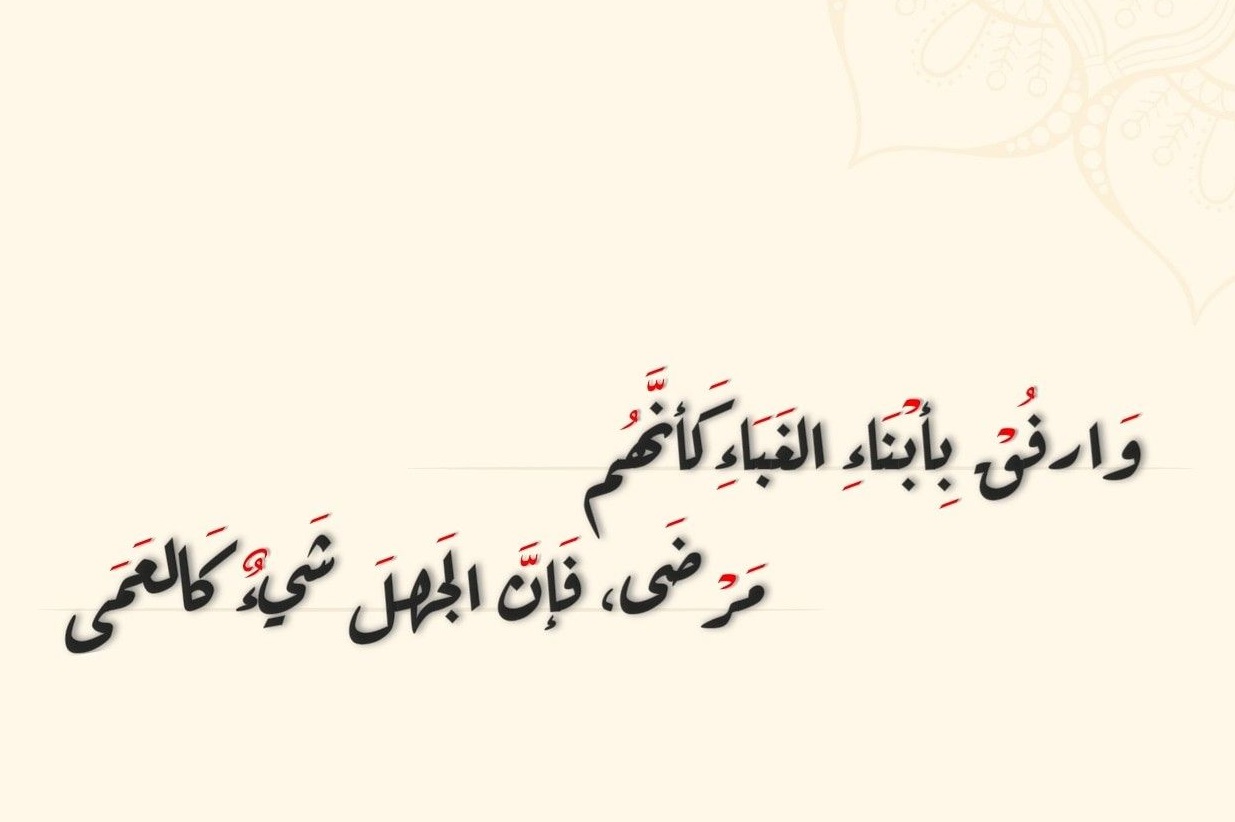 وَارفُقْ بِأبْنَاءِ الغَبَاءِ كَأنَّهُم
مَرْضَى، فَإنَّ الجَهلَ شَيءٌ كَالعَمَى